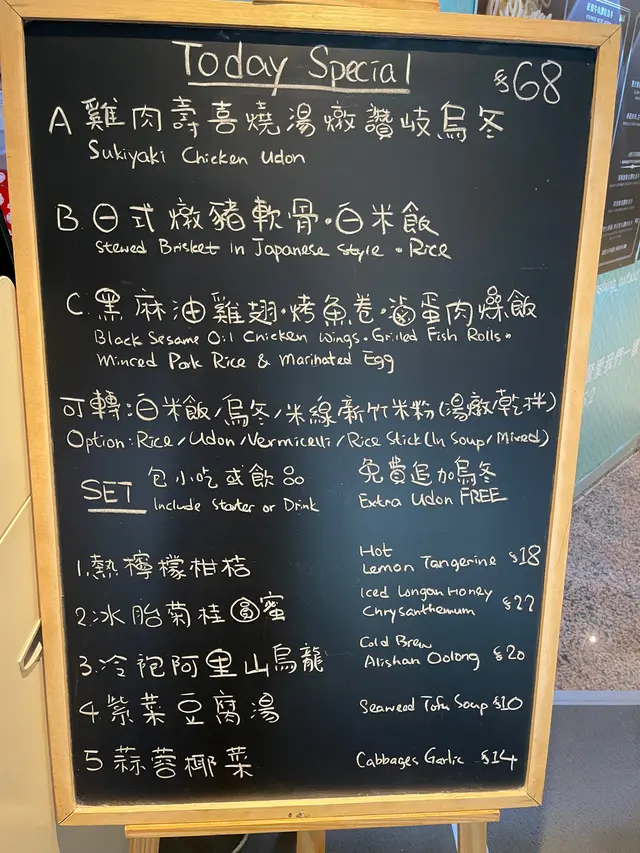 Today Special $68
A 雞肉壽喜燒湯燉讚岐烏冬
Sukiyaki Chicken Udon
B. 日式燉豬軟骨·白米飯
Stewed Brisket In Japanese Style · Rice
C. 黑麻油雞翅·烤魚卷·滷蛋肉燥飯
Black Sesame Oil Chicken Wings · Grilled Fish Rolls ·
Minced Pork Rice & Marinated Egg
可轉:白米飯/烏冬/米線/新竹米粉(湯燉/乾拌)
Option: Rice/Udon/Vermicelli/Rice Stick (In Soup/Mixed)
SET 包小吃或飲品 免費追加烏冬
Include Starter or Drink Extra Udon FREE
1. 熱檸檬柑桔 Hot Lemon Tangerine $18
2. 冰胎菊桂圓蜜 Iced Longan Honey Chrysanthemum $22
3. 冷泡阿里山烏龍 Cold Brew Alishan Oolong $20
4. 紫菜豆腐湯 Seaweed Tofu Soup $10
5 蒜蓉椰菜 Cabbages Garlic $14